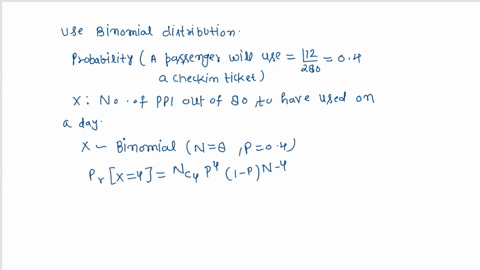 Use Binomial distribution.
Probability (A passenger will use = 112/280 = 0.4
a checkin ticket)
X: No. of PPl out of 80 to have used on
a day.
X ~ Binomial (N=8, P=0.4)
Pr[X=4] = Nc4 P^4 (1-P)^N-4